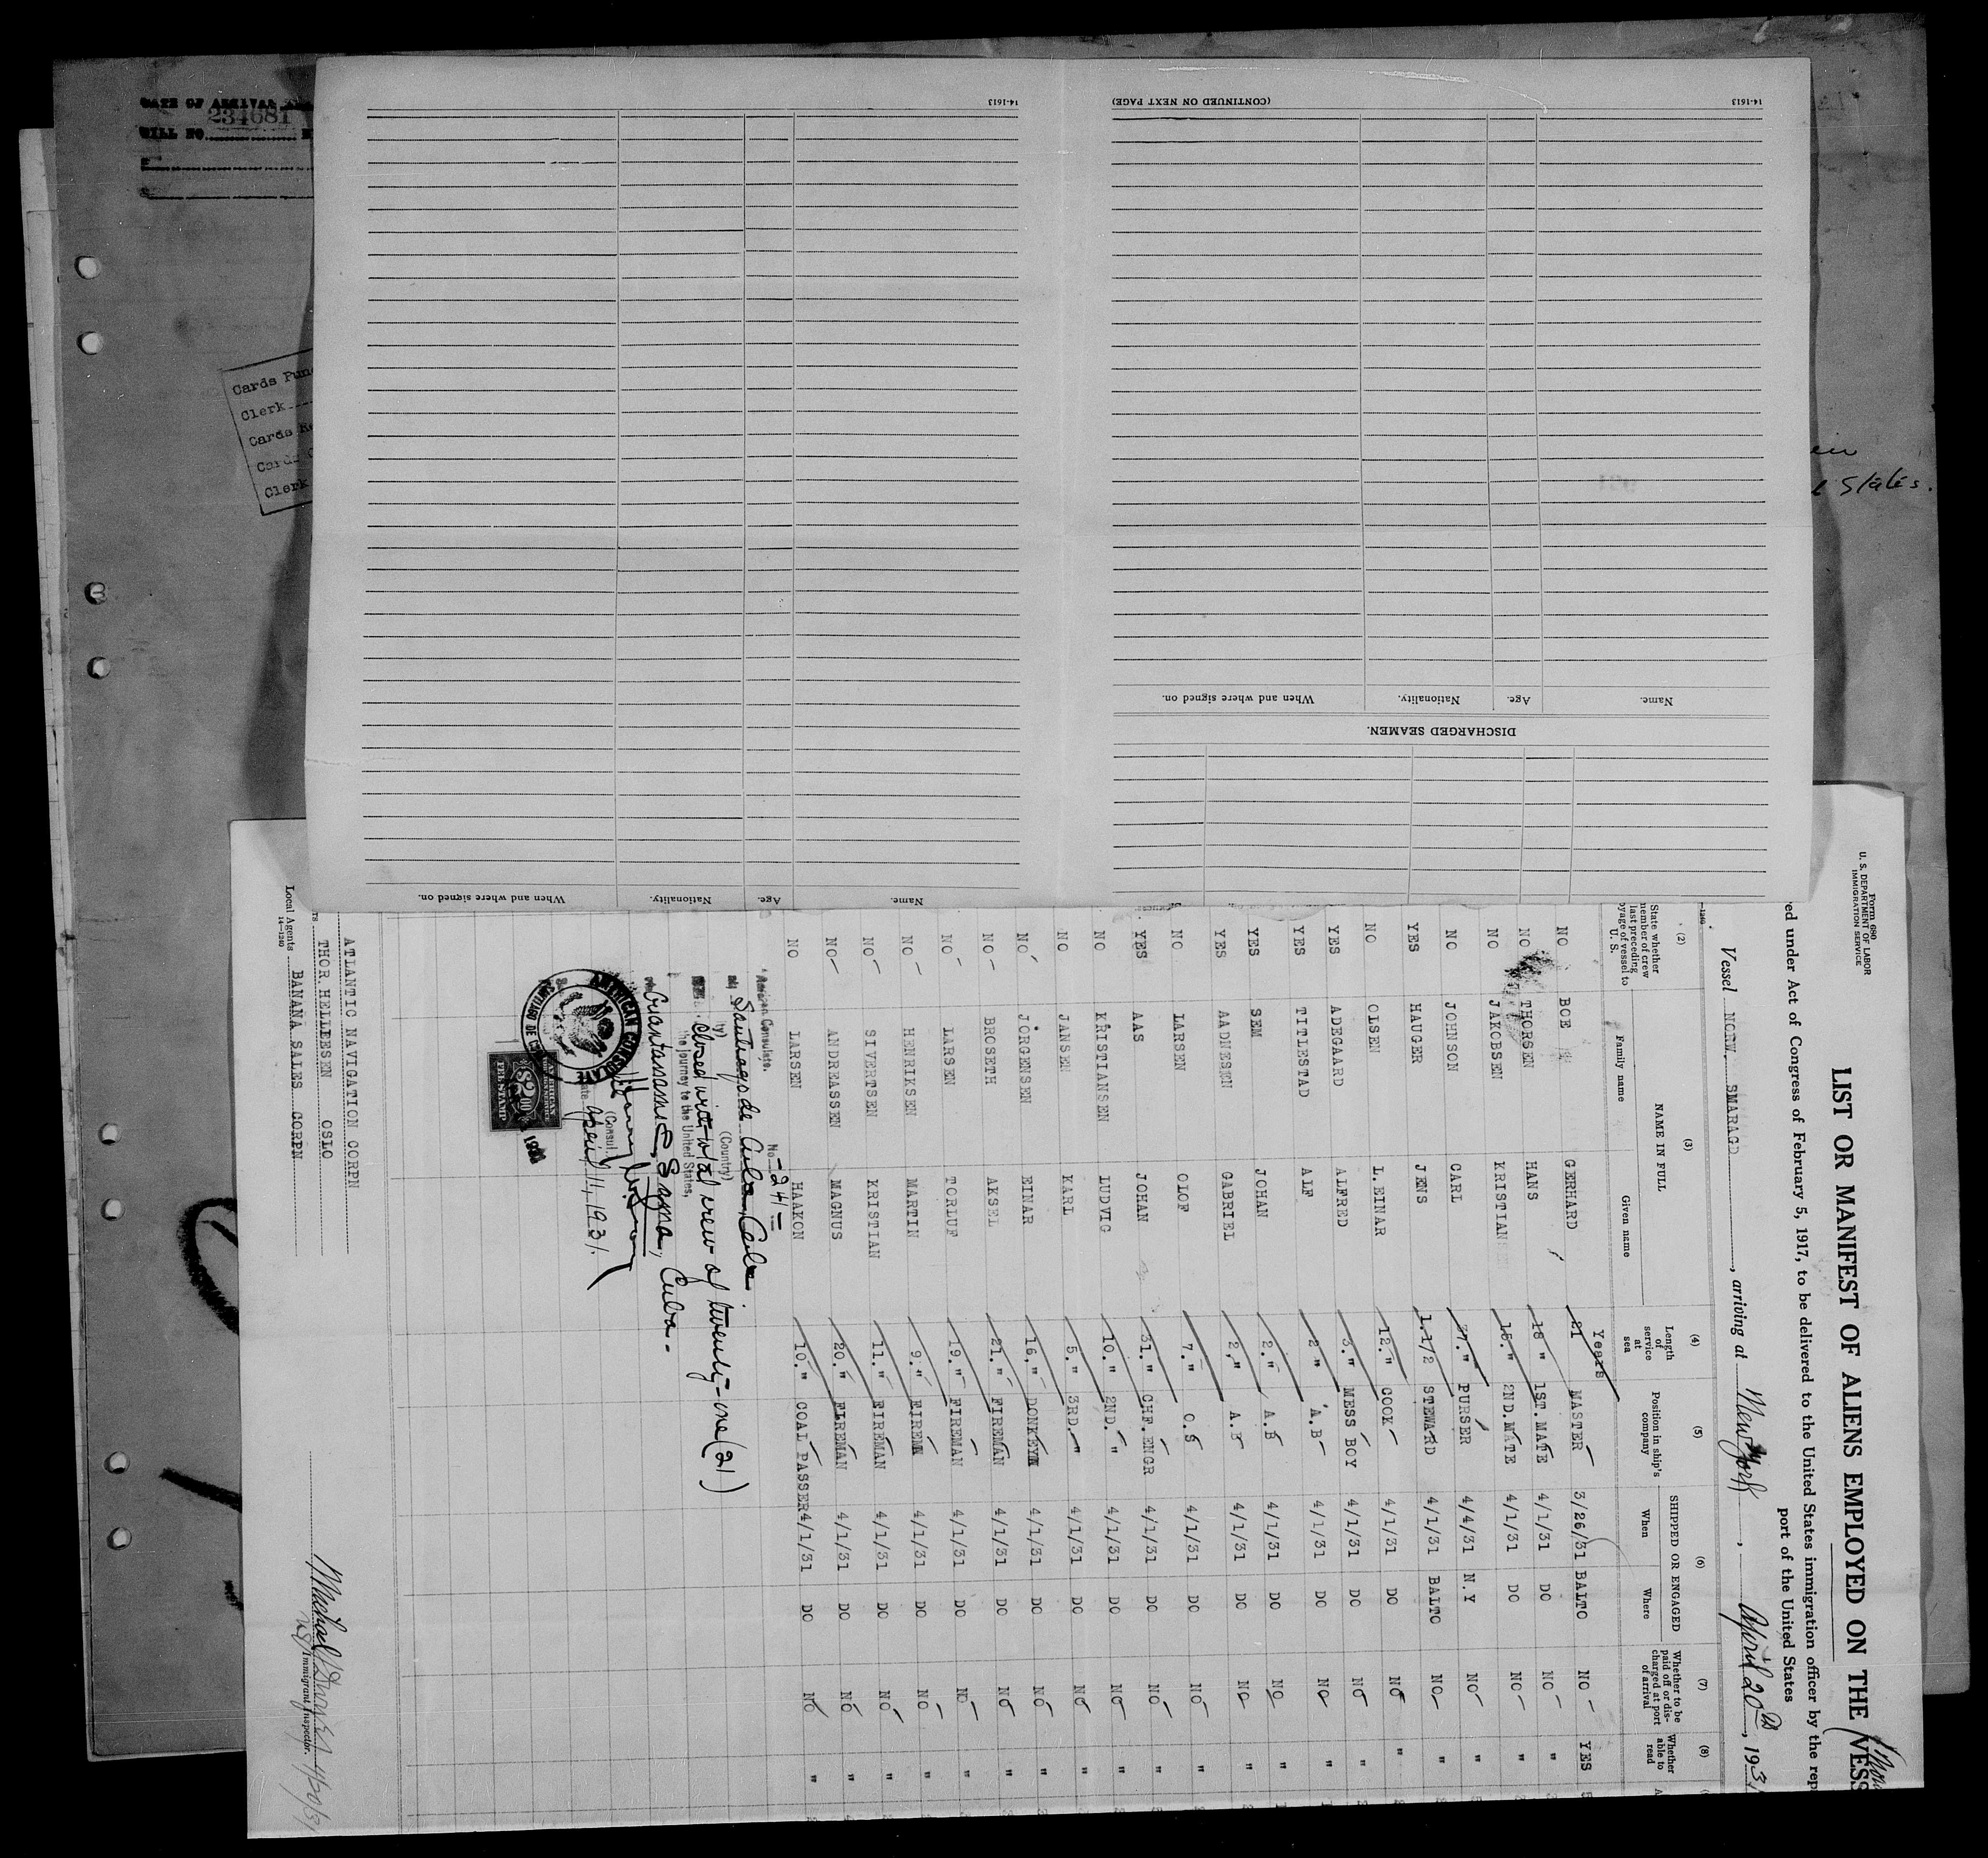 DATE OF ARRIVAL
234681
BILL NO.
Cards
Clerk
Cards
Cards
Clerk
States.
14-1613
(CONTINUED ON NEXT PAGE)
14-1613
When and where signed on. Nationality. Age. Name.
DISCHARGED SEAMEN.
When and where signed on. Nationality. Age. Name.
Form 680
U. S. DEPARTMENT OF LABOR
IMMIGRATION SERVICE
LIST OR MANIFEST OF ALIENS EMPLOYED ON THE VESS
ed under Act of Congress of February 5, 1917, to be delivered to the United States immigration officer by the rep
port of the United States
Vessel NORW. SMARAGD, arriving at New York, April 20th, 1931
(2) (3) (4) (5) (6) (7) (8)
State whether member of crew last preceding voyage of vessel to U. S.
NAME IN FULL
Family name Given name
Length of service at sea
Position in ship's company
SHIPPED OR ENGAGED
When Where
Whether to be paid off or discharged at port of arrival
Whether able to read
Years
NO BOE GERHARD 21 MASTER 3/26/31 BALTO NO YES
NO THORSEN HANS 18 " 1ST.MATE 4/1/31 DO NO "
NO JAKOBSEN KRISTIAN 15." 2ND.MATE 4/1/31 DO NO "
NO JOHNSON CARL 37." PURSER 4/4/31 N.Y NO "
YES HAUGER JENS 1.1/2 STEWARD 4/1/31 BALTO NO "
NO OLSEN L.EINAR 12." COOK 4/1/31 DO NO "
YES ADEGAARD ALFRED 3." MESS BOY 4/1/31 DO NO "
YES TITLESTAD ALF 2 " A.B 4/1/31 DO NO "
YES SEM JOHAN 2." A.B 4/1/31 DO NO "
YES AADNESEN GABRIEL 2." A.B 4/1/31 DO NO "
NO LARSEN OLOF 7." O.S 4/1/31 DO NO "
YES AAS JOHAN 31." CHF.ENGR 4/1/31 DO NO "
NO KRISTIANSEN LUDVIG 10." 2ND. " 4/1/31 DO NO "
NO JANSEN KARL 5." 3RD. " 4/1/31 DO NO "
NO JORGENSEN EINAR 16." DONKEYM 4/1/31 DO NO "
NO BROSETH AKSEL 21." FIREMAN 4/1/31 DO NO "
NO LARSEN TORLUF 19." FIREMAN 4/1/31 DO NO "
NO HENRIKSEN MARTIN 9." FIREMN 4/1/31 DO NO "
NO SIVERTSEN KRISTIAN 11." FIREMAN 4/1/31 DO NO "
NO ANDREASSEN MAGNUS 20." FIREMAN 4/1/31 DO NO "
NO LARSEN HAAKON 10." COAL PASSER 4/1/31 DO NO "
American Consulate. No. -241-
Santiago de Cuba, Cuba
(Country)
Closed with total crew of twenty-one (21)
the journey to the United States,
Guantanamo & Sagua, Cuba.
(Consul)
April 11, 1931.
AMERICAN CONSULATE
SANTIAGO DE CUBA
AMERICAN
$2.00
FEE STAMP
ATLANTIC NAVIGATION CORPN
THOR. HELLESEN OSLO
Local Agents BANANA SALES CORPN
14-1240
Immigrant Inspector.
4/20/31